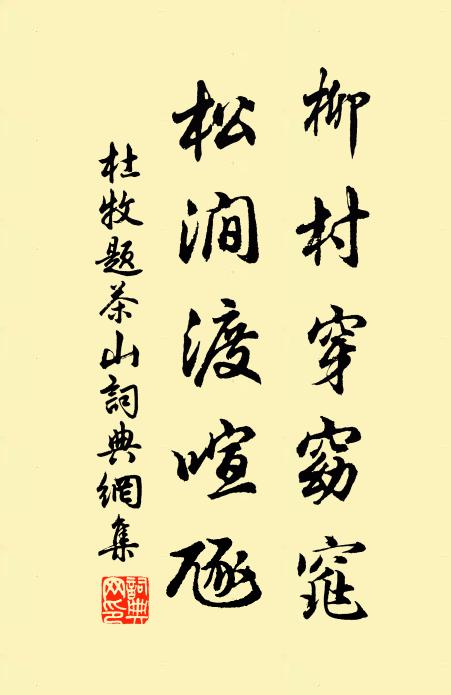 柳村穿窈窕
松澗渡喧豗
杜牧题茶山詞典網集
詞典网印